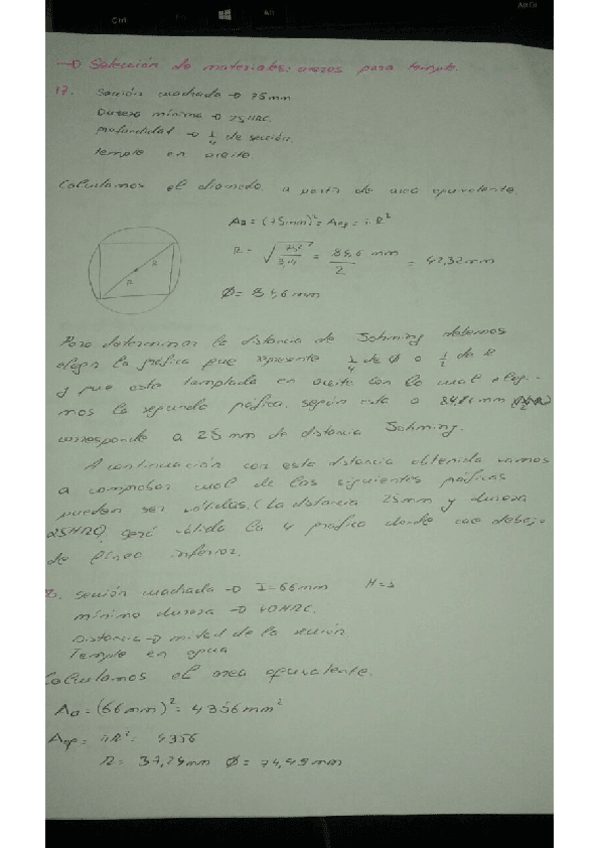 → Selección de materiales: aceros para temple.
1º. Sección cuadrada → 75mm
Dureza mínima → 25HRC.
profundidad → 1/4 de sección.
temple en aceite.
Calculamos el diametro a partir de area equivalente
A□ = (75mm)² = Aeq = π·R²
R = √(75²/3,14) = 84,6 mm/2 = 42,32mm
R
R
Ø = 84,6mm
Para determinar la distancia de Jominy debemos
elegir la gráfica que represente 1/4 de Ø o 1/2 de R
y que este templada en aceite con lo cual elegi-
mos la segunda gráfica. según esta a 84,6mm
corresponde a 25mm de distancia
A continuación con esta distancia obtenida vamos
a comprobar cual de las siguientes gráficas
pueden ser válidas. (La distancia 25mm y dureza
25HRC) será válida la 4 gráfica donde cae debajo
de línea inferior.
2. Sección cuadrada → I=66mm H=1
mínimo dureza → 40HRC.
Distancia → mitad de la sección.
Temple en agua
Calculamos el area equivalente.
A□ = (66mm)² = 4356mm²
Aeq = πR² = 4356
R = 37,24mm Ø = 74,49mm